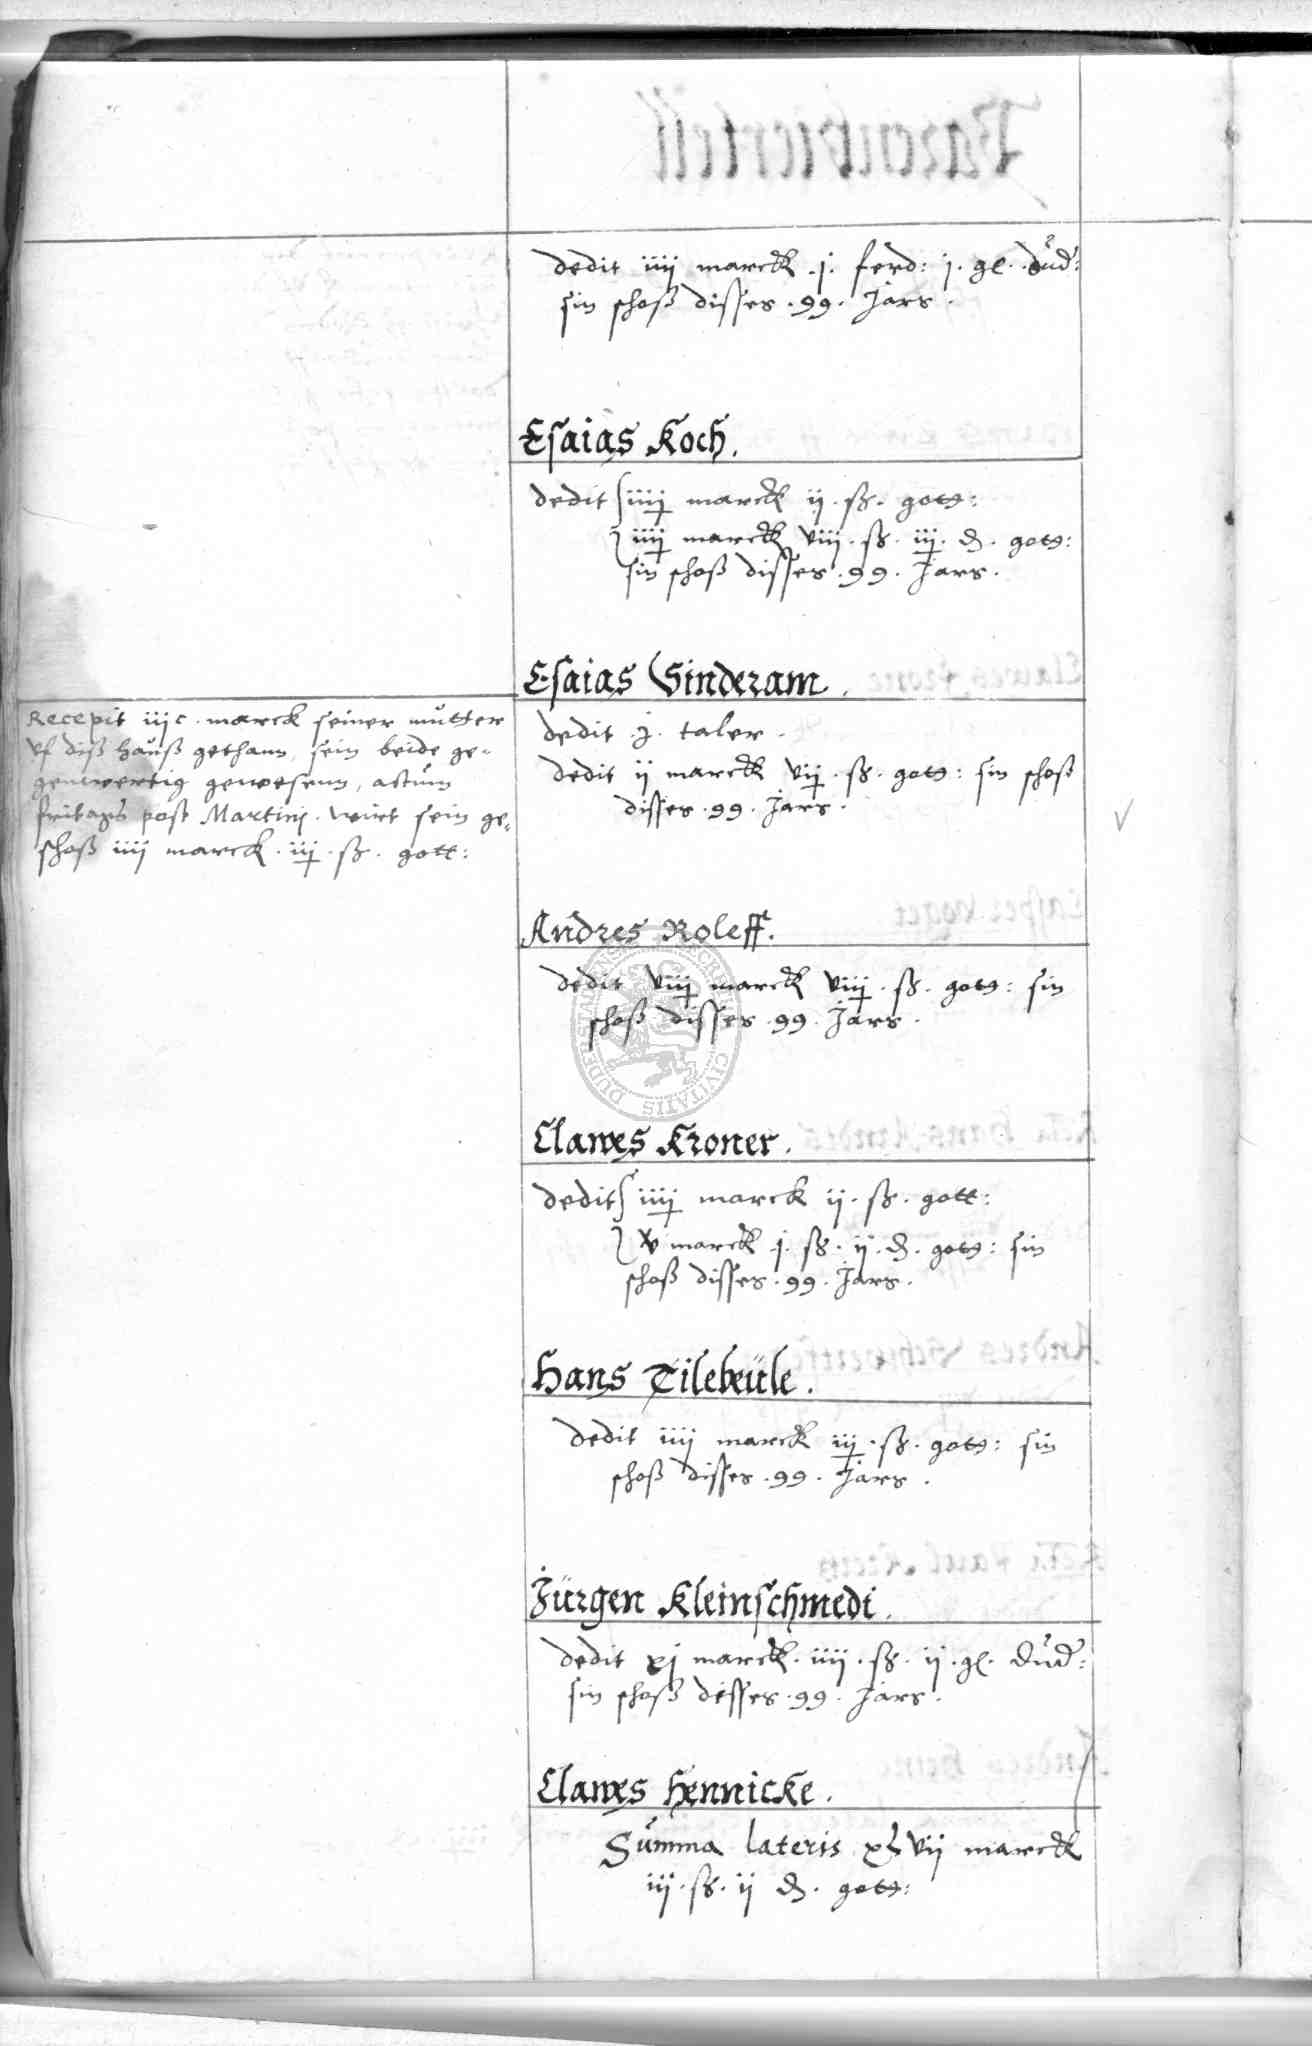 dedit iiij marck .j. ferd: j. gl. dud:
sin schoß disses .99. Jars.
Esaias Koch.
dedit iiij marck ij. ß. gots:
iiij marck viij. ß. iij. d. gots:
sin schoß disses .99. Jars.
Esaias Sinderam.
Recepit iijc. marck seiner mutter
uf diß hauß gethann, sein beide ge-
genwertig gewesenn, actum
fritags post Martini. wirt sein ge-
schoß iiij marck. iij. ß. gott:
dedit .j. taler.
dedit ij marck vij. ß. gots: sin schoß
disses .99. Jars.
Andres Roleff.
dedit viij marck viij. ß. gots: sin
schoß disses .99. Jars.
Clawes Kroner.
dedit iiij marck ij. ß. gott:
v marck .j. ß. ij. d. gots: sin
schoß disses .99. Jars.
Hans Tilebeüle.
dedit iiij marck iij. ß. gots: sin
schoß disses .99. Jars.
Jürgen Kleinschmedt.
dedit xj marck. iiij. ß. ij. gl. dud:
sin schoß disses .99. Jars.
Clawes Hennicke.
Summa lateris xlvij marck
iij. ß. ij d. gots: